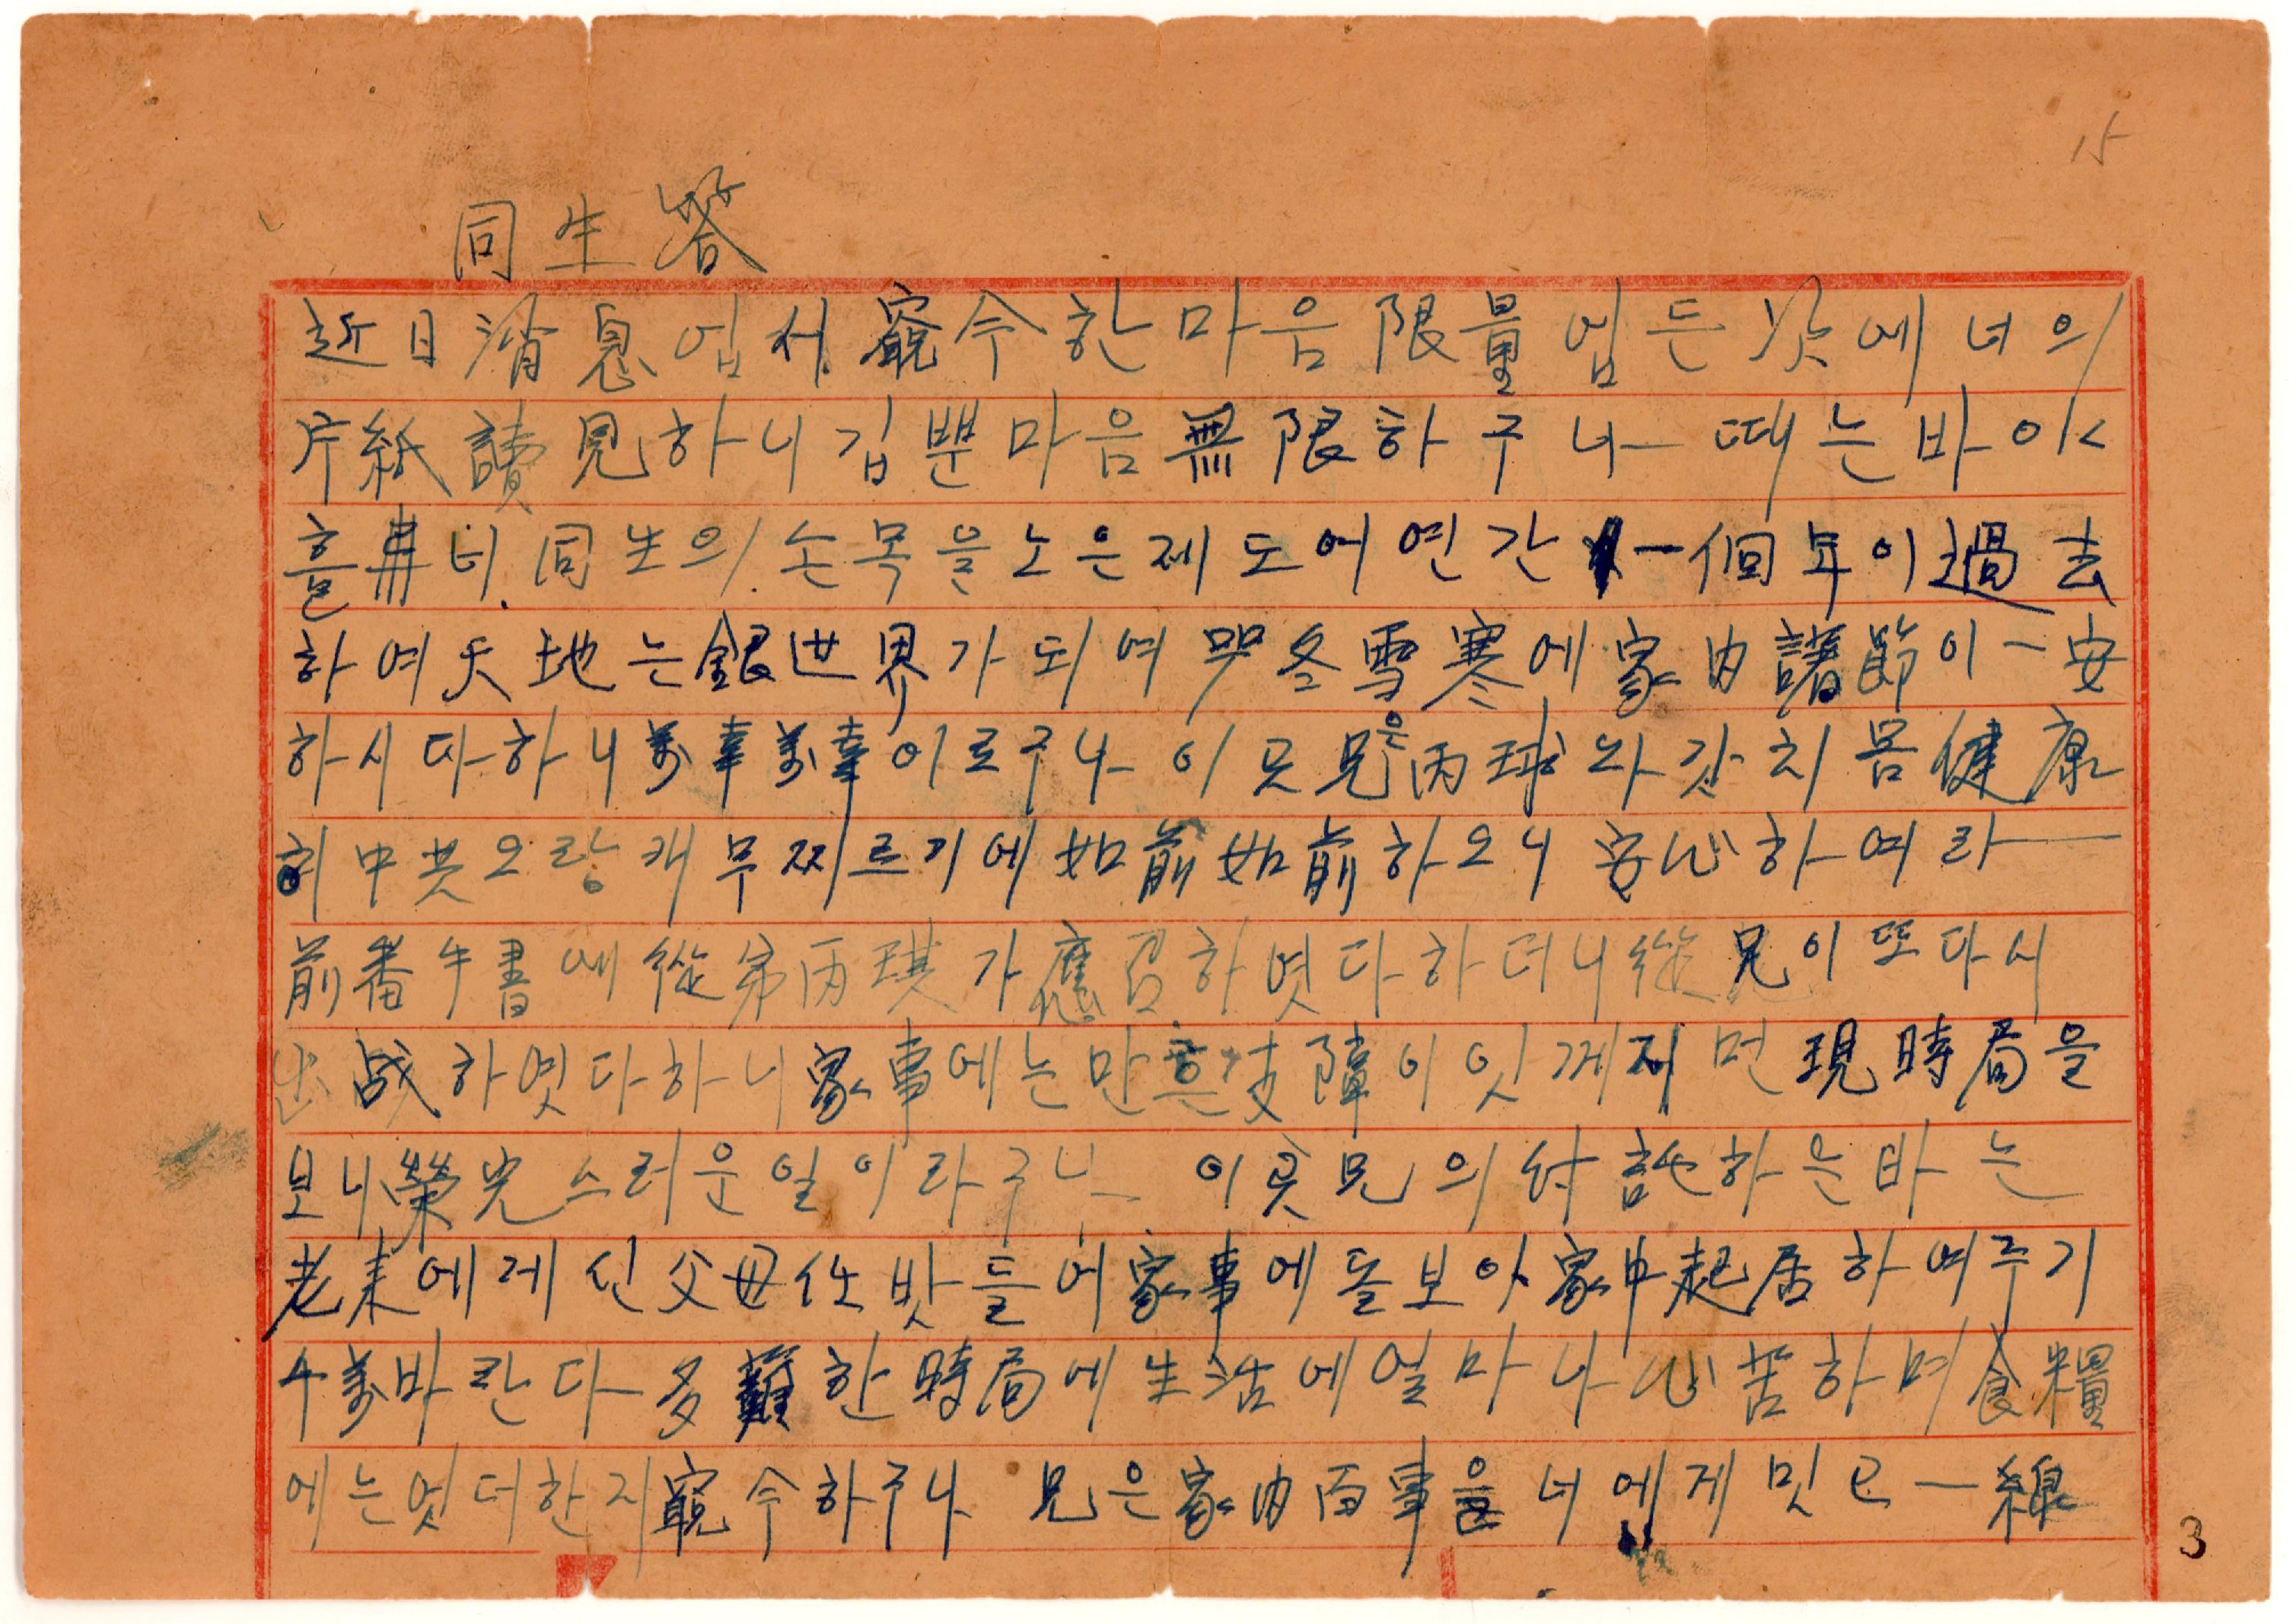 15
同生答
近日消息업서 窮今한 마음 限量업든 次에 너의
片紙讀見하니 깁뿐 마음 無限하구나 때는 바야
흘 너 同生의 손목을 노은제도 어연간 一個年이 過去
하여 天地는 銀世界가 되여 冬雪寒에 家內諸節이 一安
하시다 하니 萬幸萬幸이로구나 이곳 兄은 丙球와 갓치 몸健康
히 中共오랑캐 무찌르기에 如前如前하오니 安心하여라
前番 书書에 從弟丙琪가 應召하엿다 하더니 從兄이 또다시
出战하엿다 하니 家事에는 만흔 支障이 잇게지먼 現時局을
보니 榮光스러운 일이라구나 이곳 兄의 付託하는 바는
老來에 게신 父母任 밧들어 家事에 돌보아 家中起居하여 주기
千萬 바란다 多難한 時局에 生活에 얼마나 心苦하며 食糧
에는 엇더한지 窮今하구나 兄은 家內百事을 너에게 밋고 一線
3